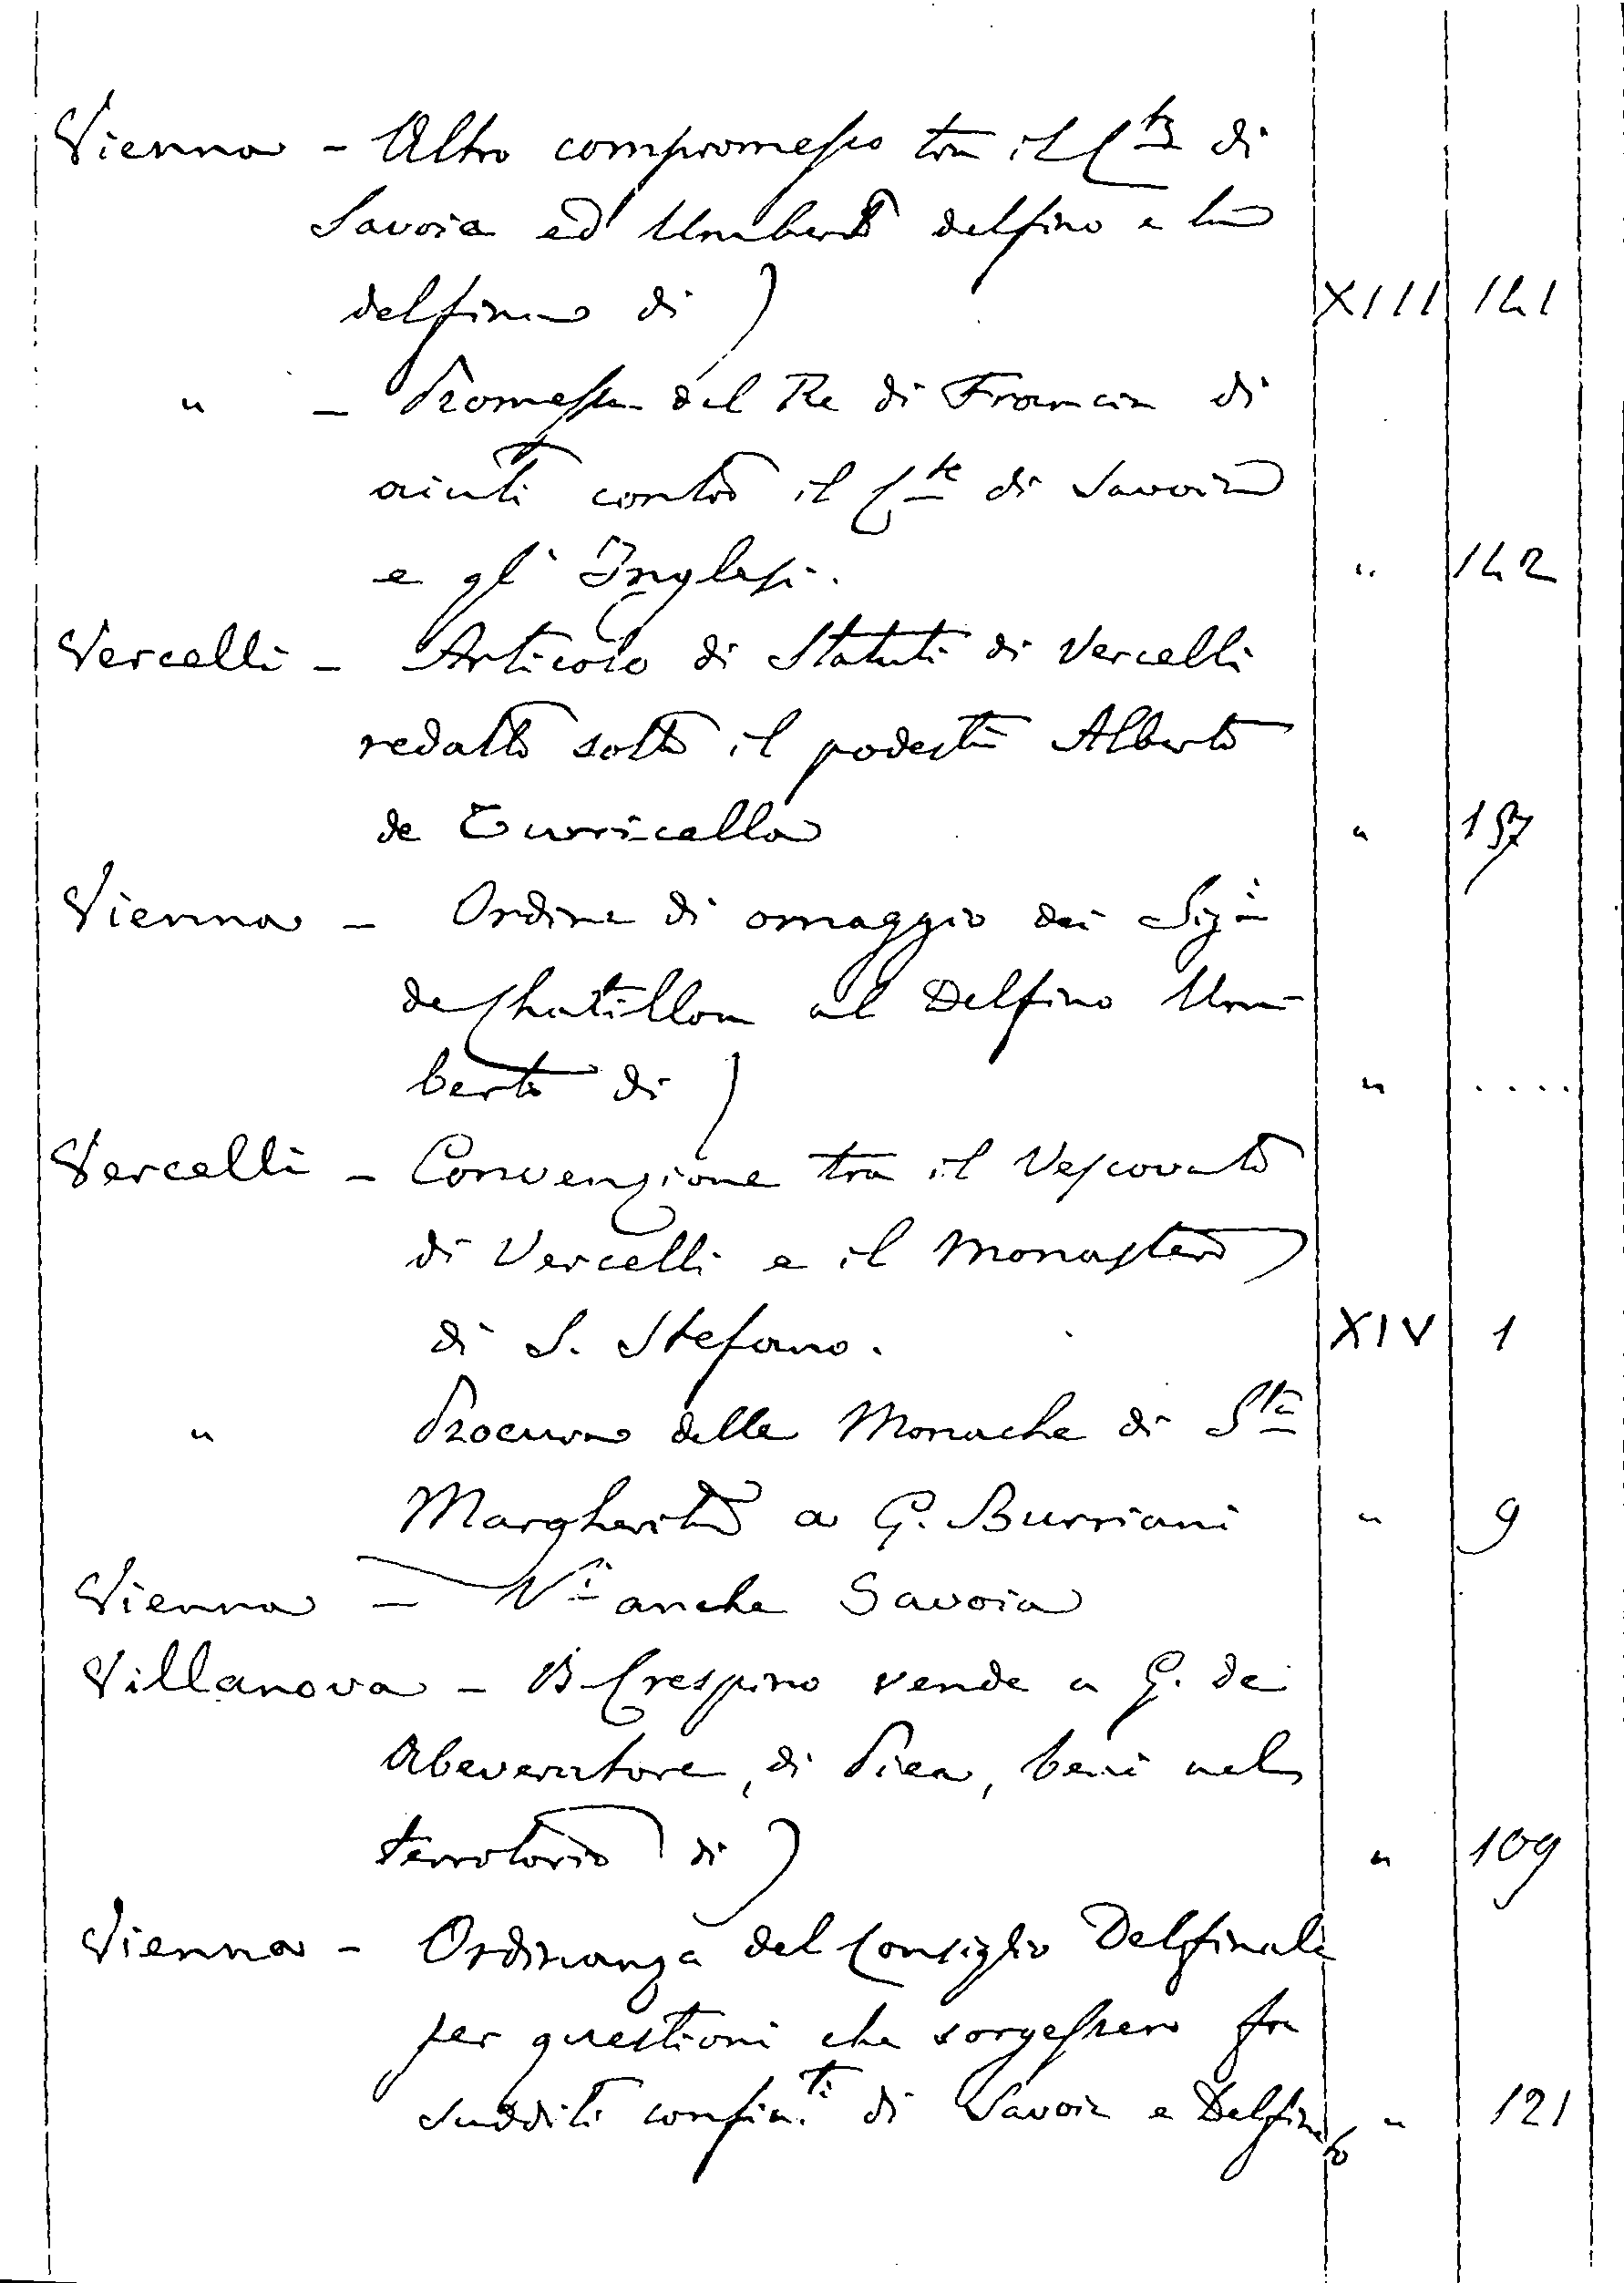 Vienna - Altro compromesso tra il C.te di
Savoia ed Umberto delfino e la
delfina di) XIII 141
" - Promessa del Re di Francia di
aiuti contro il C.te di Savoia
e gl' Inglesi. " 142
Vercelli - Articolo di Statuti di Vercelli
redatto sotto il podestà Alberto
de Turricella " 157
Vienna - Ordine di omaggio dei Sig.i
de Chatillon al Delfino Um-
berto di) " ....
Vercelli - Convenzione tra il Vescovato
di Vercelli e il Monastero
di S. Stefano. XIV 1
" Procura delle Monache di S.ta
Margherita a G. Burriani " 9
Vienna - V.i anche Savoia
Villanova - B. Crespino vende a G. de
Abeveratore, di Piea, beni nel
terrotorio di) " 109
Vienna - Ordinanza del Consiglio Delfinale
per questioni che sorgessero fra
sudditi confin.ti di Savoia e Delfinato " 121